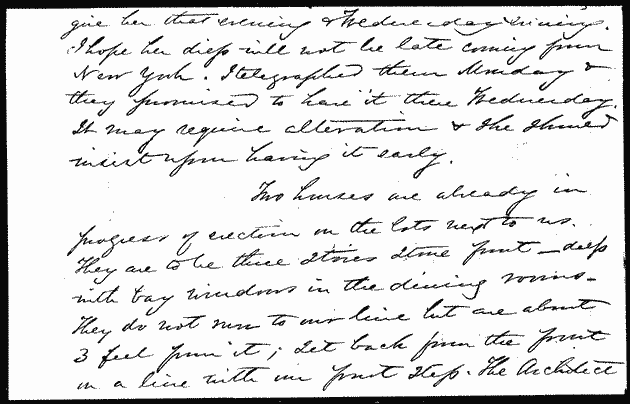 give her that evening & Wednesday evening.
I hope her dress will not be late coming from
New York. I telegraphed them Monday &
they promised to have it there Wednesday.
It may require alteration & she should
insist upon having it early.
Two houses are already in
progress of erection on the lots next to us.
They are to be three stories stone front — deep
with bay windows in the dining rooms —
They do not run to our line but are about
3 feet from it; set back from the front
on a line with our front step. The Architect